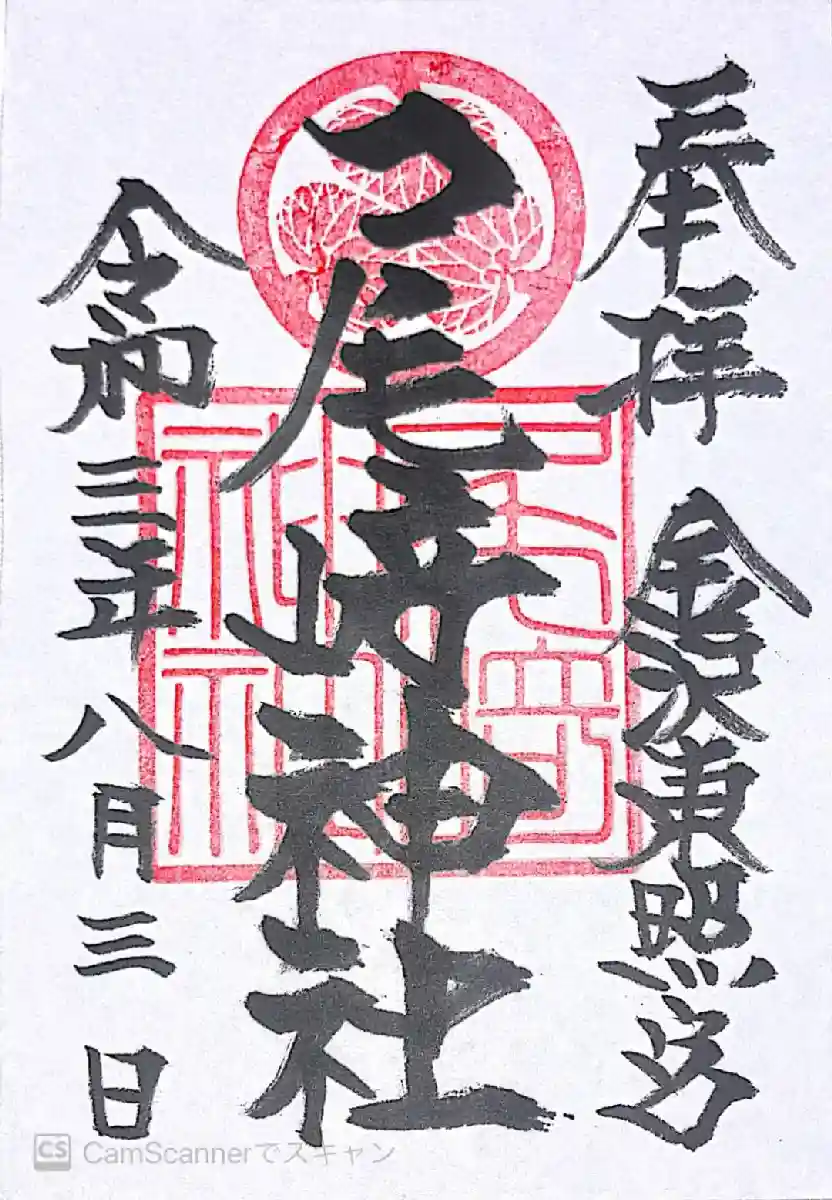 奉拝
金沢東照宮
尾崎神社
令和三年八月三日
尾崎
神社
CS CamScannerでスキャン